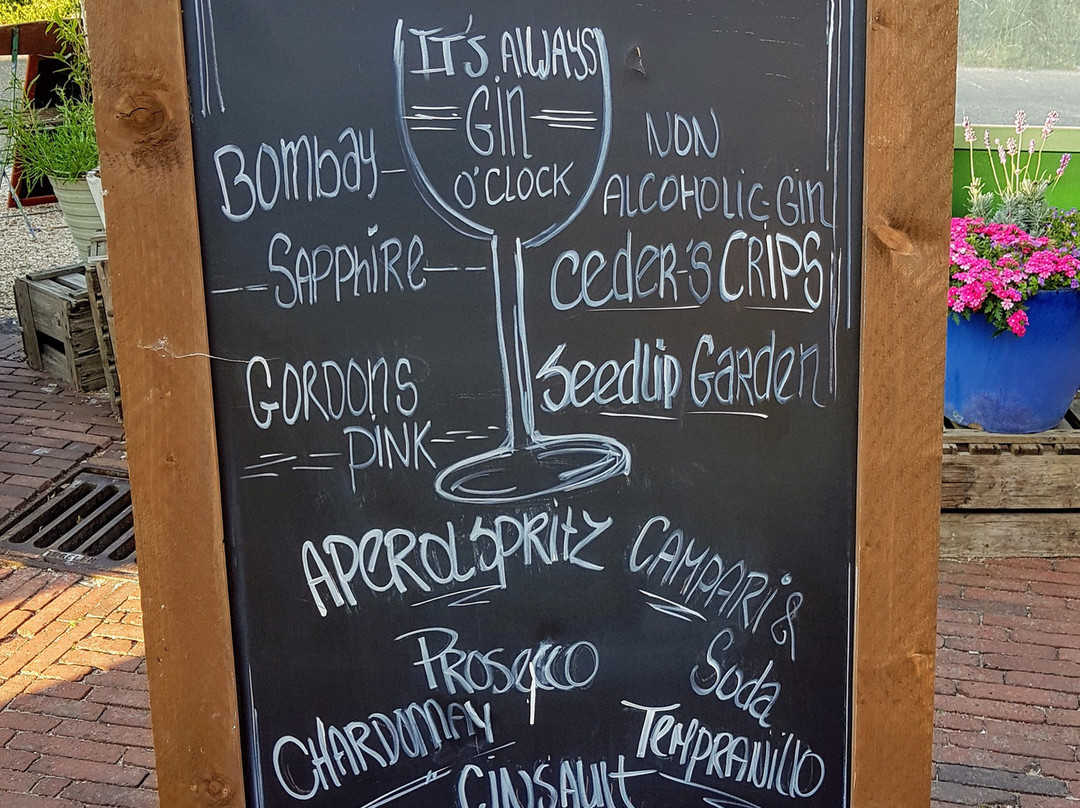 IT'S AlWAYS
Gin
O'CLOCK
Bombay
SAPPhiRe
GORDONS
PINK
NON
ALCOHOLiC-Gin
CeDeR'S CRIPS
Seedlip Garden
APEROL SPRITZ
CAMPARi &
Soda
PROSeCCO
CHARDONNAY
TEMPRANiLlO
CINSAUlT